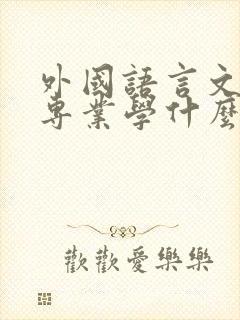 外國語言文
專業學什麼
歡歡愛樂樂